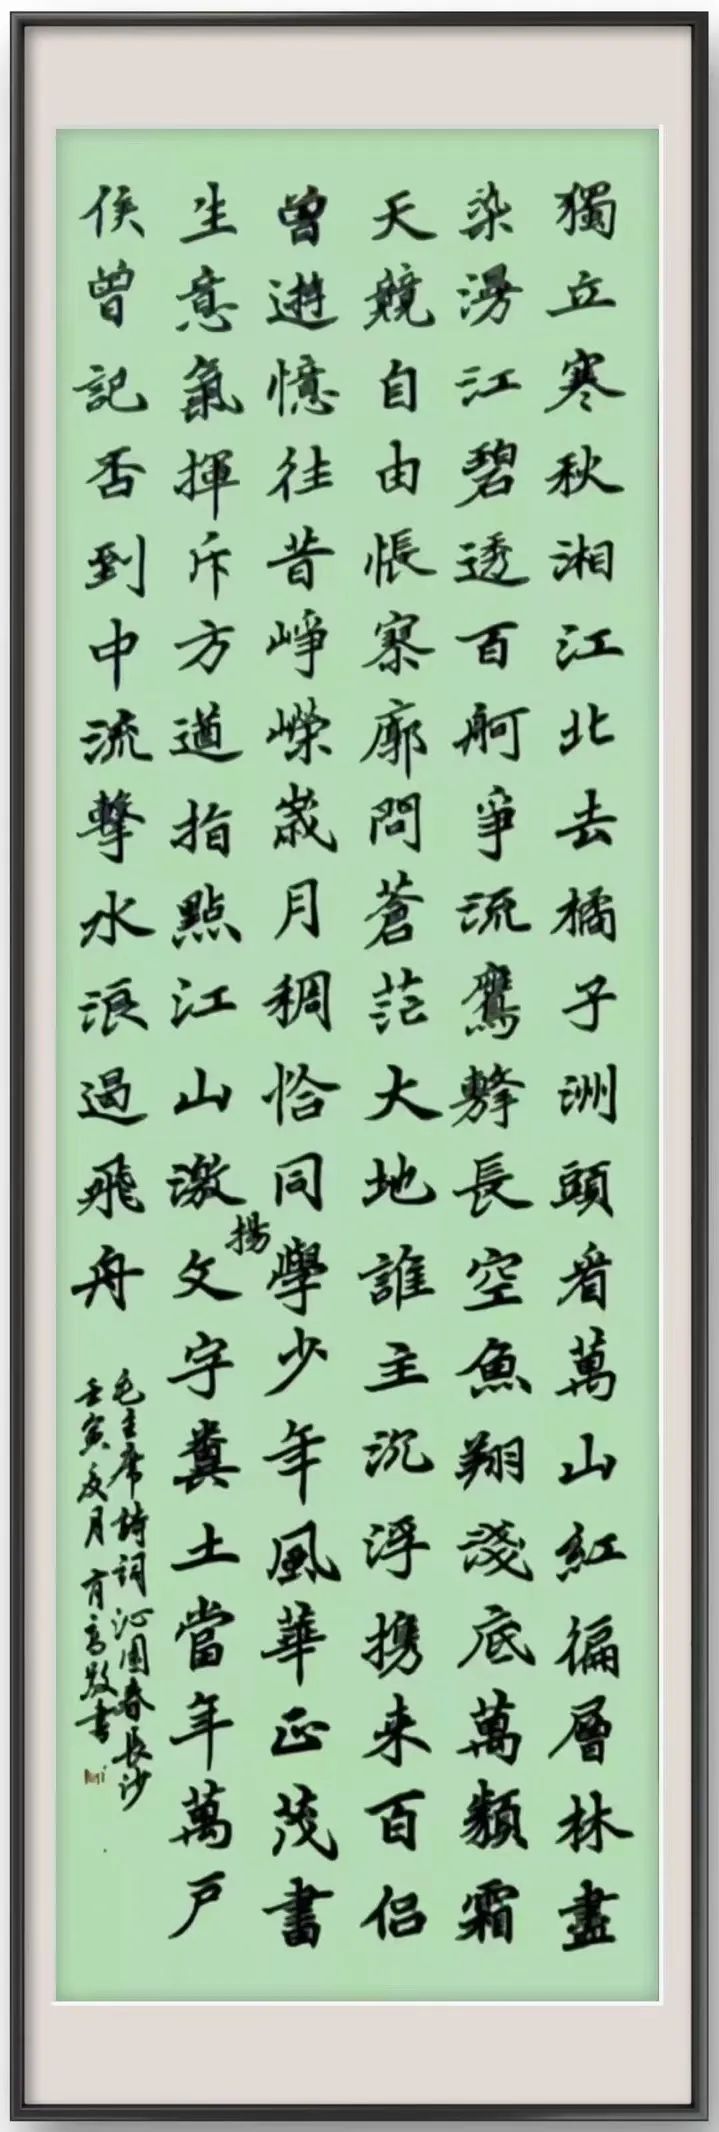 獨立寒秋湘江北去橘子洲頭看萬山紅徧層林盡
染漫江碧透百舸爭流鷹擊長空魚翔淺底萬類霜
天競自由悵寥廓問蒼茫大地誰主沉浮攜来百侣
曾遊憶往昔崢嶸歲月稠恰同學少年風華正茂書
生意氣揮斥方遒指點江山激揚文字糞土當年萬戶
侯曾記否到中流擊水浪遏飛舟
毛主席詩詞沁園春長沙
壬寅夏月